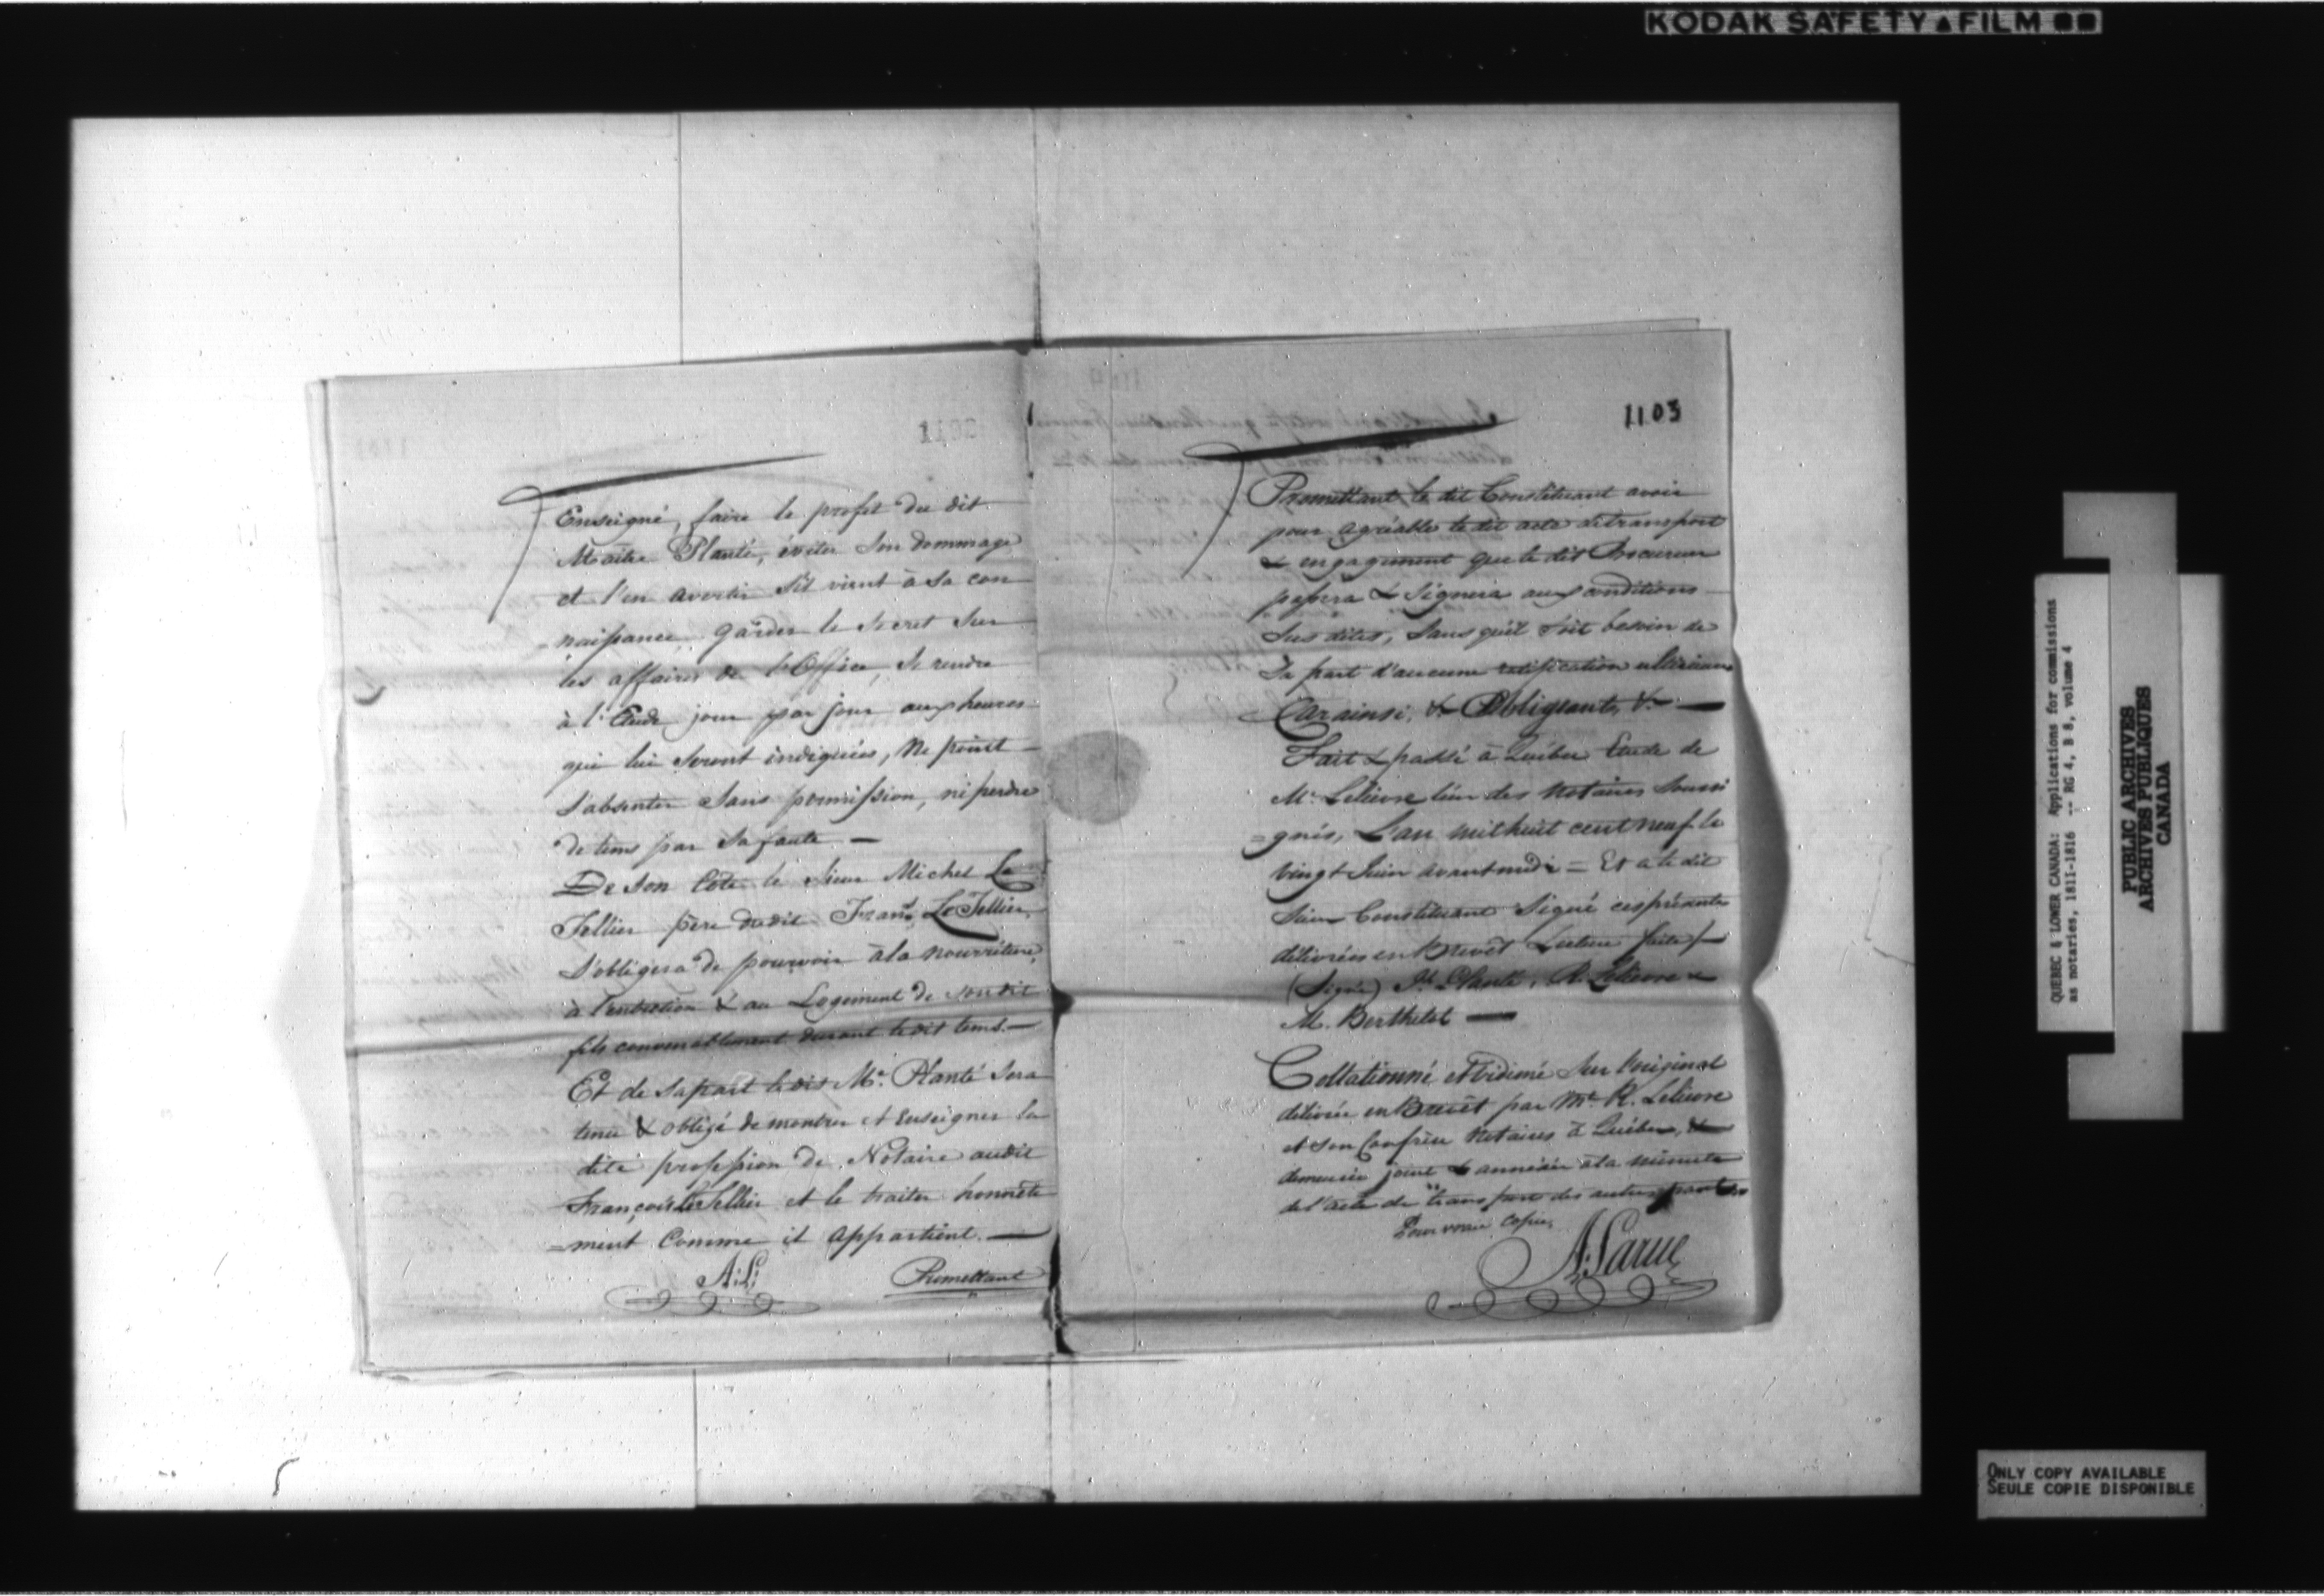 KODAK SAFETY FILM
1102
Enseigné, faire le profit du dit
Maitre Planté, éviter son dommage
et l'en avertir s'il vient à sa con
naissance, garder le secret sur
les affaires de l'Office, se rendre
à l'Etude jour par jour aux heures
qui lui seront indiquées, ne point
s'absenter sans permission, ni perdre
de tems par sa faute. —
De son Coté le Sieur Michel Le
Tellier père dudit Frans. LeTellier,
s'obligera de pourvoir à la nourriture,
à l'entretien & au Logement de son dit
fils convenablement durant ledit tems. —
Et de sa part le dit Me. Planté sera
tenu & obligé de montrer et Enseigner la
dite profession de Notaire audit
François LeTellier et le traiter honnête
=ment Comme il appartient. —
A:L:
Promettant
1103
Promettant le dit Constituant avoir
pour agréable le dit acte de transport
& engagement que le dit Procureur
passera & signera aux conditions
sus dites, sans qu'il soit besoin de
sa part d'aucune ratification ultérieure
Car ainsi, &c. Obligeant, &c. —
Fait & passé à Québec Etude de
Mr. Lelievre l'un des Notaires Soussi
=gnés, L'an mil huit cent neuf le
vingt Juin avant midi = Et a le dit
Sieur Constituant Signé ces présentes
délivrées en Brevêt Lecture faite
(Signé) Jh. Planté, R. Lelievre &
M. Berthelot —
Collationné et Vidimé sur l'original
délivré en Brevêt par Mre. R. Lelievre
et son Confrère Notaires à Québec, &
demeurée jointe & annéxée à la minute
de l'acte de transport des autres parts
Pour vraie Copie,
A: Larue
QUEBEC & LOWER CANADA: Applications for commissions
as notaries, 1811-1816 -- RG 4, B 8, volume 4
PUBLIC ARCHIVES
ARCHIVES PUBLIQUES
CANADA
ONLY COPY AVAILABLE
SEULE COPIE DISPONIBLE